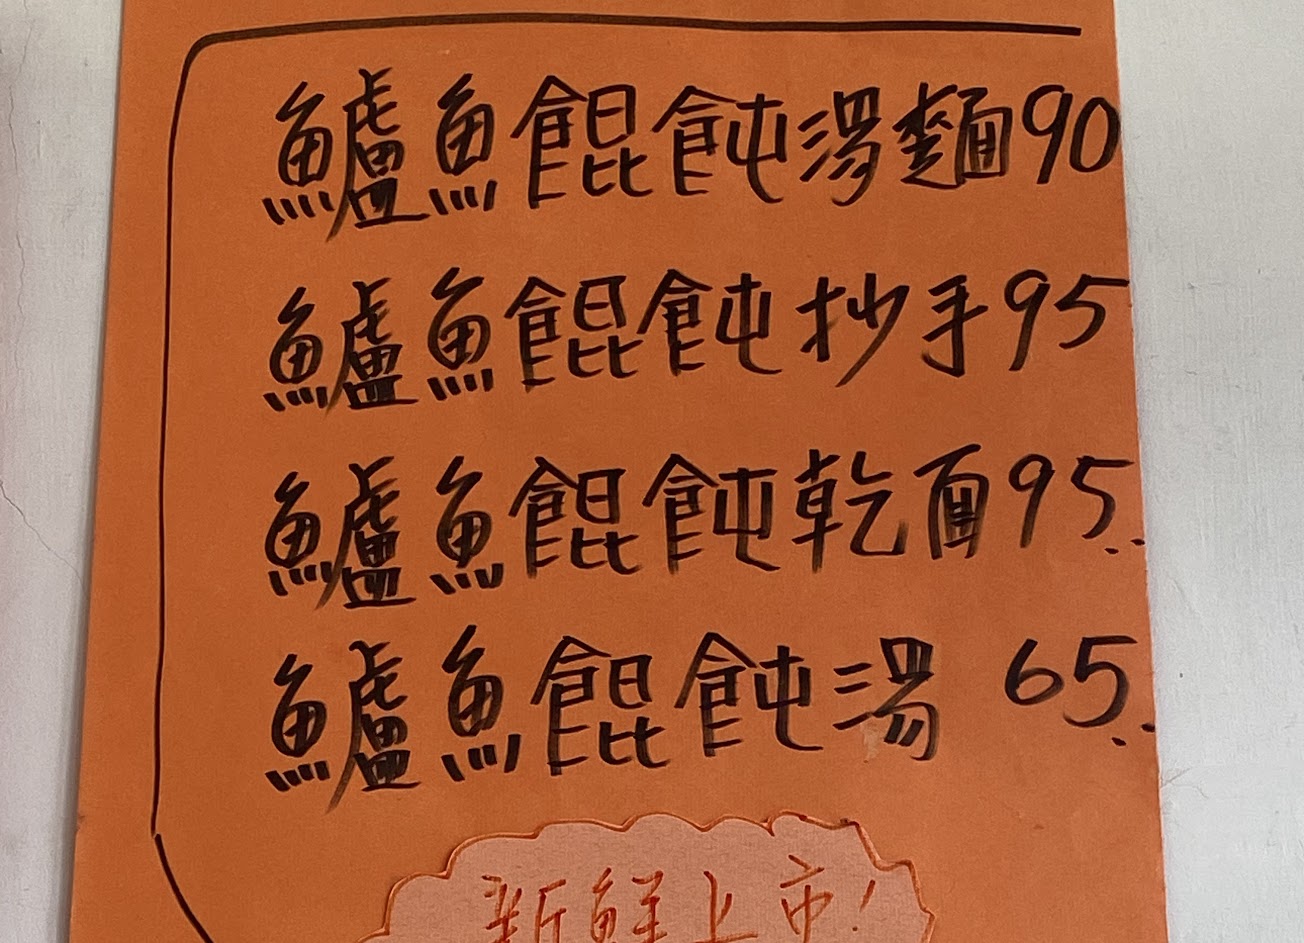 鱸魚餛飩湯麵90
鱸魚餛飩抄手95
鱸魚餛飩乾面95
鱸魚餛飩湯 65
新鮮上市!